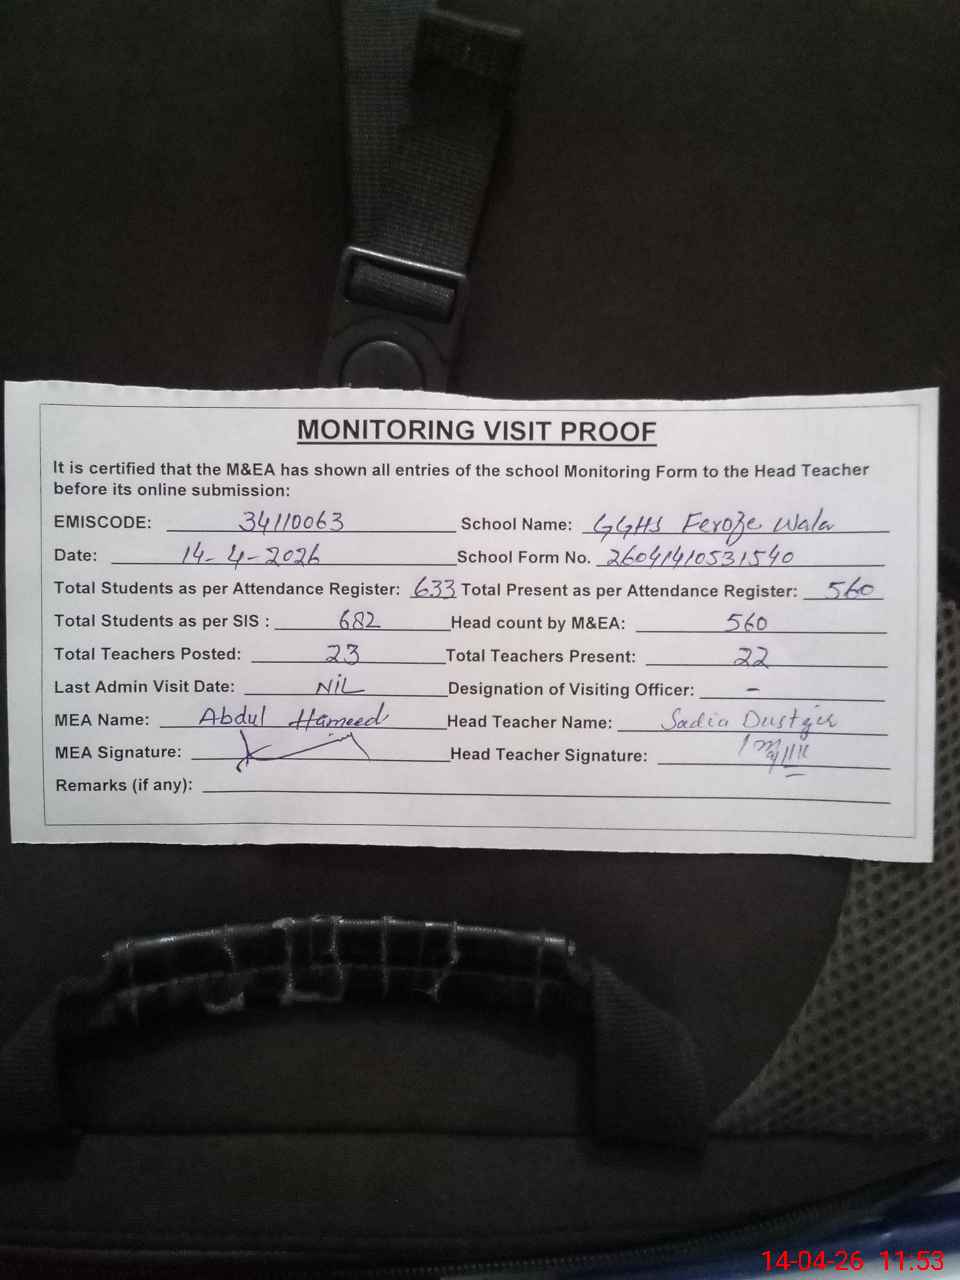 MONITORING VISIT PROOF
It is certified that the M&EA has shown all entries of the school Monitoring Form to the Head Teacher
before its online submission:
EMISCODE: 34110063 School Name: GGHS Feroze Wala
Date: 14-4-2026 School Form No. 26041410531540
Total Students as per Attendance Register: 633 Total Present as per Attendance Register: 560
Total Students as per SIS : 682 Head count by M&EA: 560
Total Teachers Posted: 23 Total Teachers Present: 22
Last Admin Visit Date: NIL Designation of Visiting Officer: -
MEA Name: Abdul Hameed Head Teacher Name: Sadia
MEA Signature: Head Teacher Signature:
Remarks (if any):
14-04-26 11:53